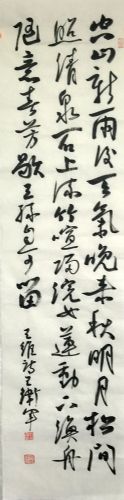 空山新雨後天氣晚來秋明月松間
照清泉石上流竹喧歸浣女蓮動下漁舟
隨意春芳歇王孫自可留
王維詩王衛軍